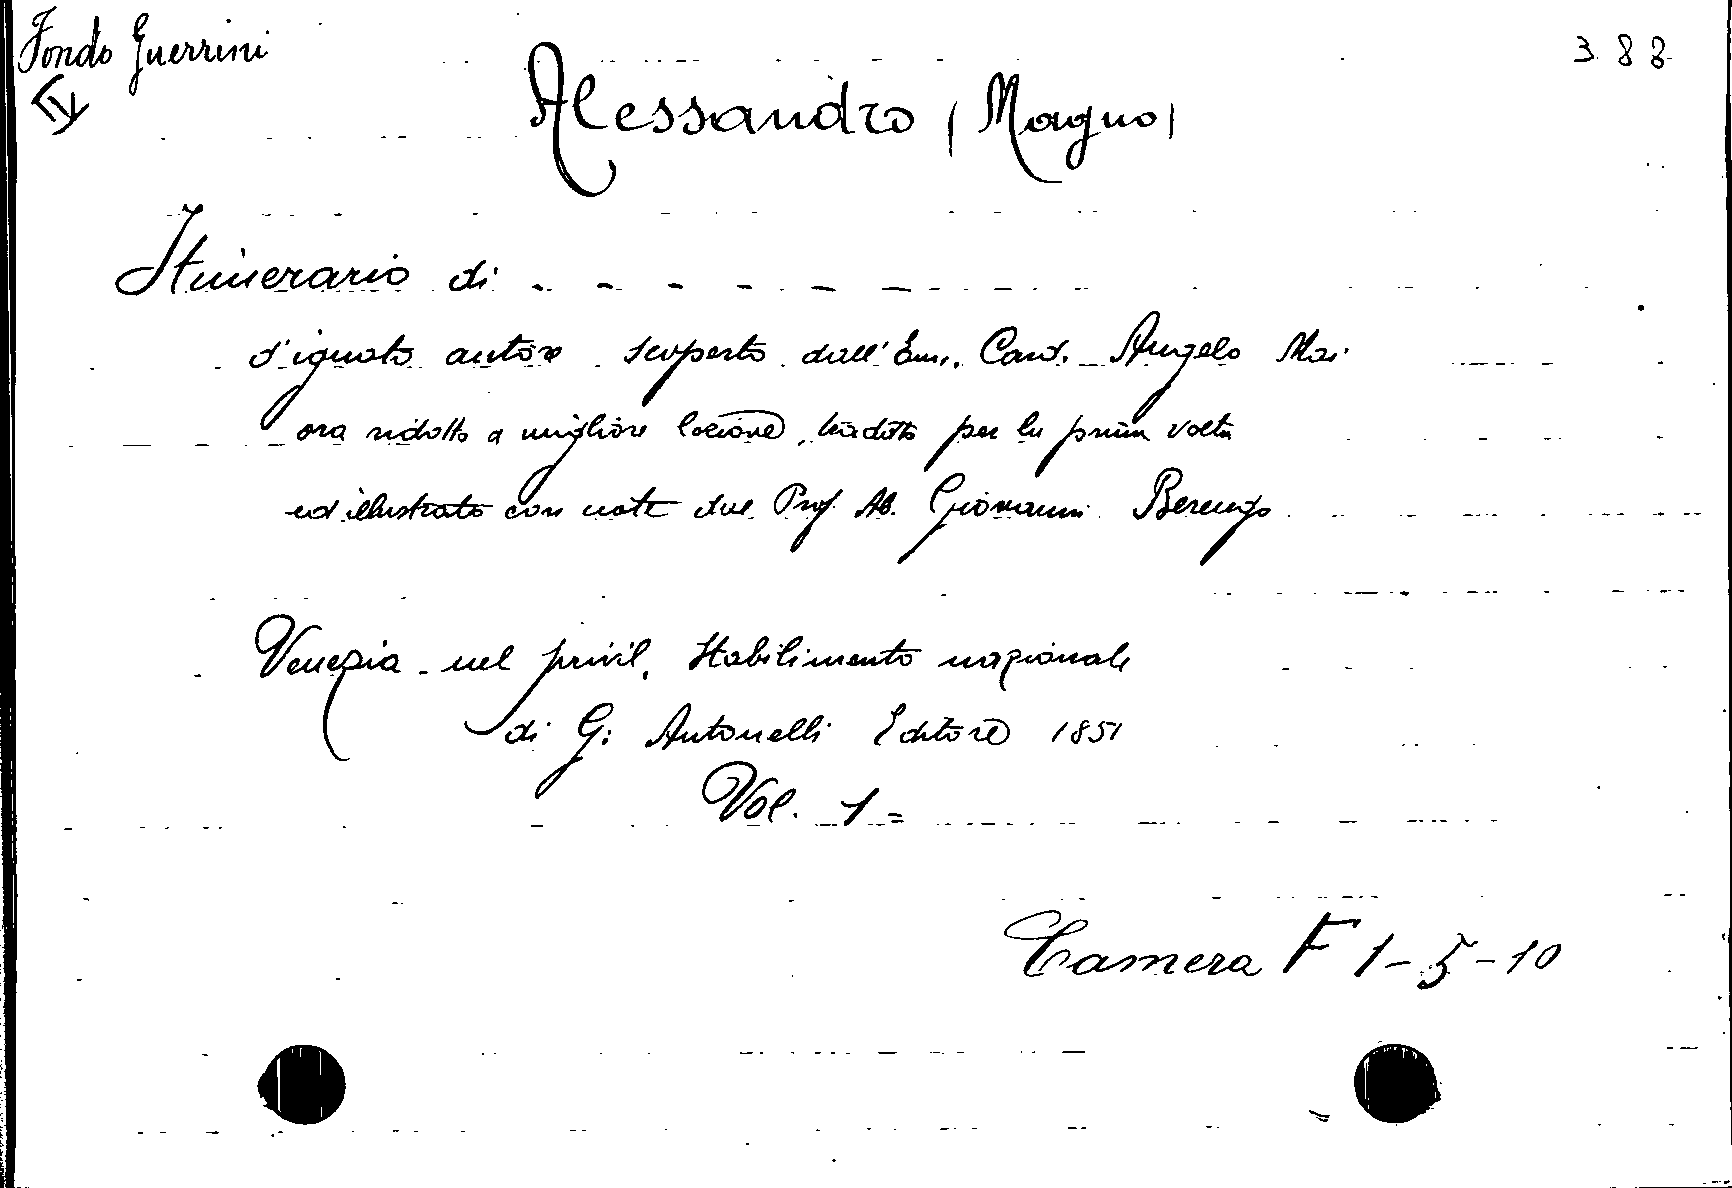 Fondo Guerrini
388
Alessandro (Magno)
Itinerario di - - - - - -
d'ignoto autore scoperto dall'Em. Card. Angelo Mai
ora ridotto a migliore lezione, tradotto per la prima volta
ed illustrato con note dal Prof. Ab. Giovanni Berengo
Venezia - nel privil. Stabilimento nazionale
di G. Antonelli Editore 1851
Vol. 1 =
Camera F 1-5-10